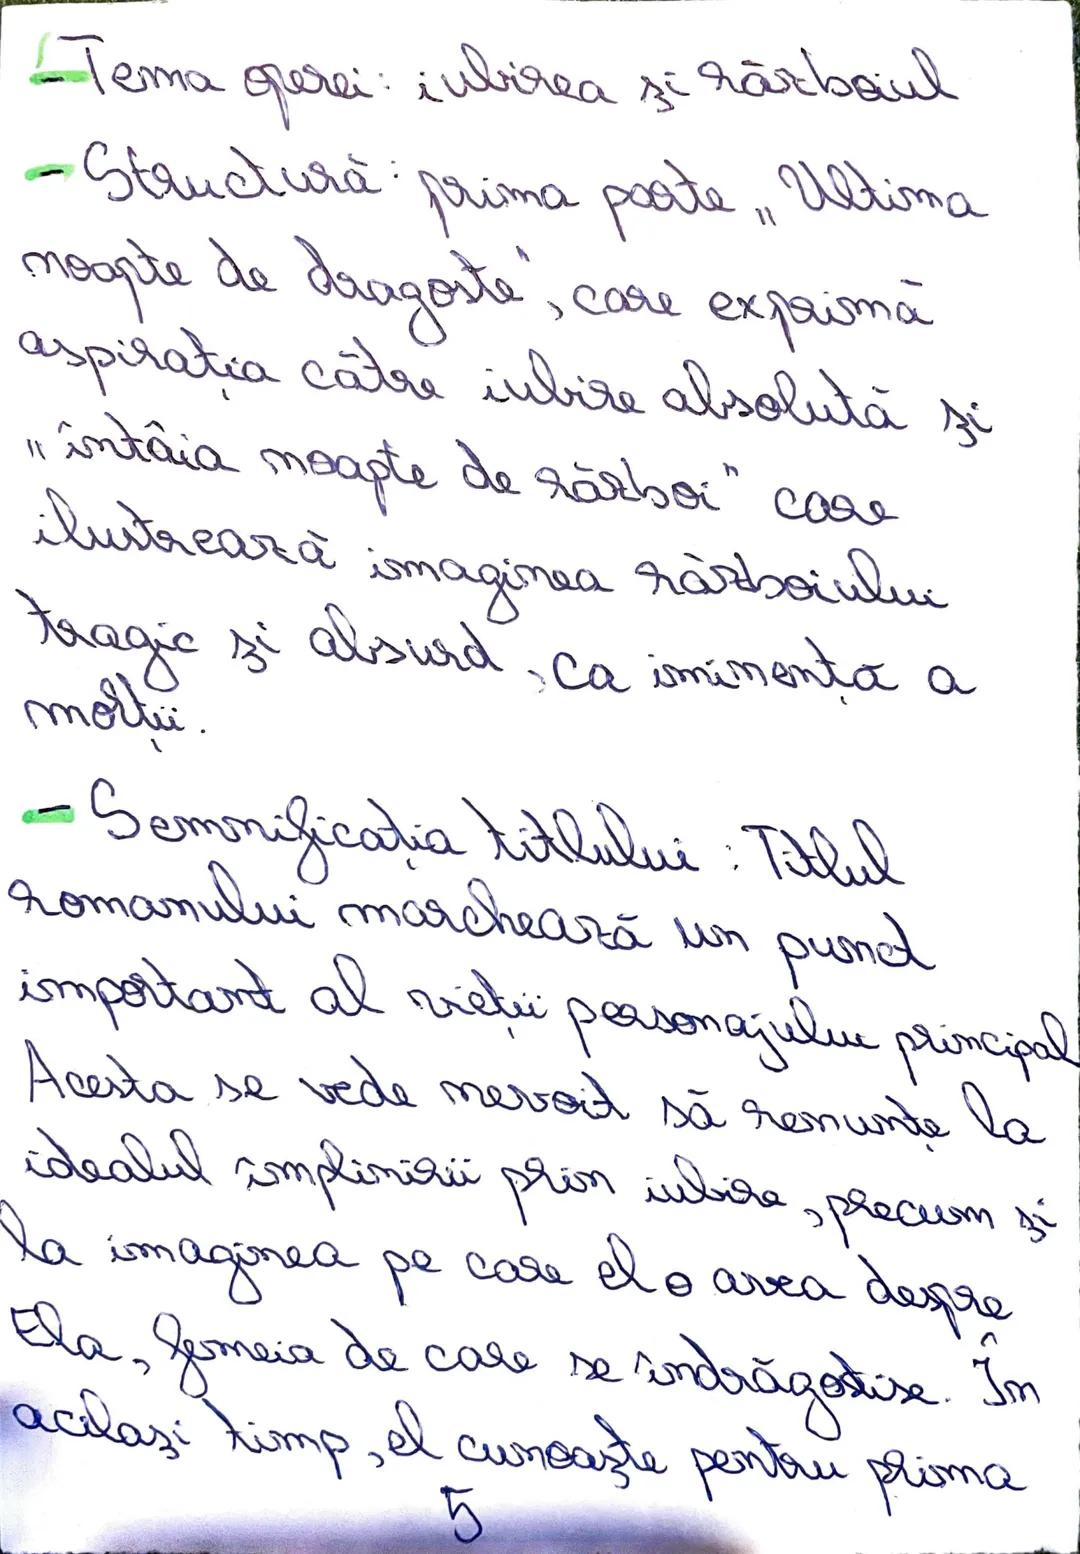 - Tema operei: iubirea și războiul
- Structură: prima parte „Ultima
noapte de dragoste", care exprimă
aspirația către iubire absolută și
„întâia noapte de război" care
ilustrează imaginea războiului
tragic și absurd, ca iminența a
morții.
- Semnificația titlului: Titlul
romanului marchează un punct
important al vieții personajului principal
Acesta se vede nevoit să renunțe la
idealul împlinirii prin iubire, precum și
la imaginea pe care el o avea despre
Ela, femeia de care se îndrăgostise. În
același timp, el cunoaște pentru prima
5